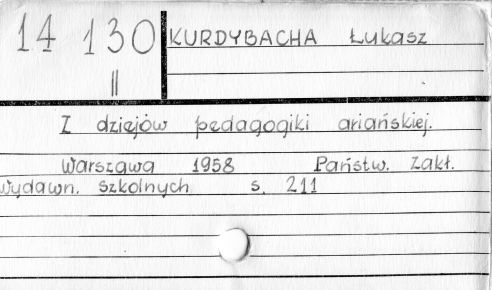 14 130 KURDYBACHA Łukasz
II
Z dziejów pedagogiki ariańskiej.
Warszawa 1958 Państw. Zakł.
Wydawn. Szkolnych s. 211